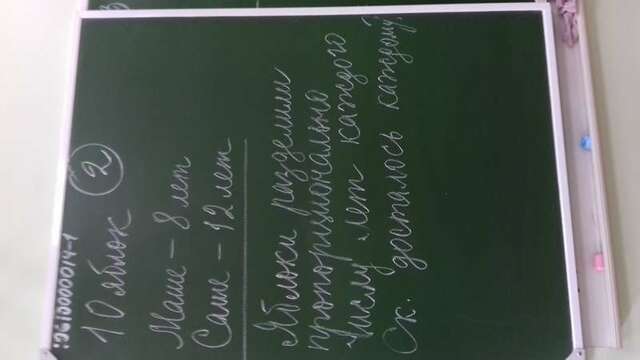 10 яблок
2
Маше – 8 лет
Саше – 12 лет
Яблоки разделили
пропорционально
числу лет каждого
Ск. досталось каждому?